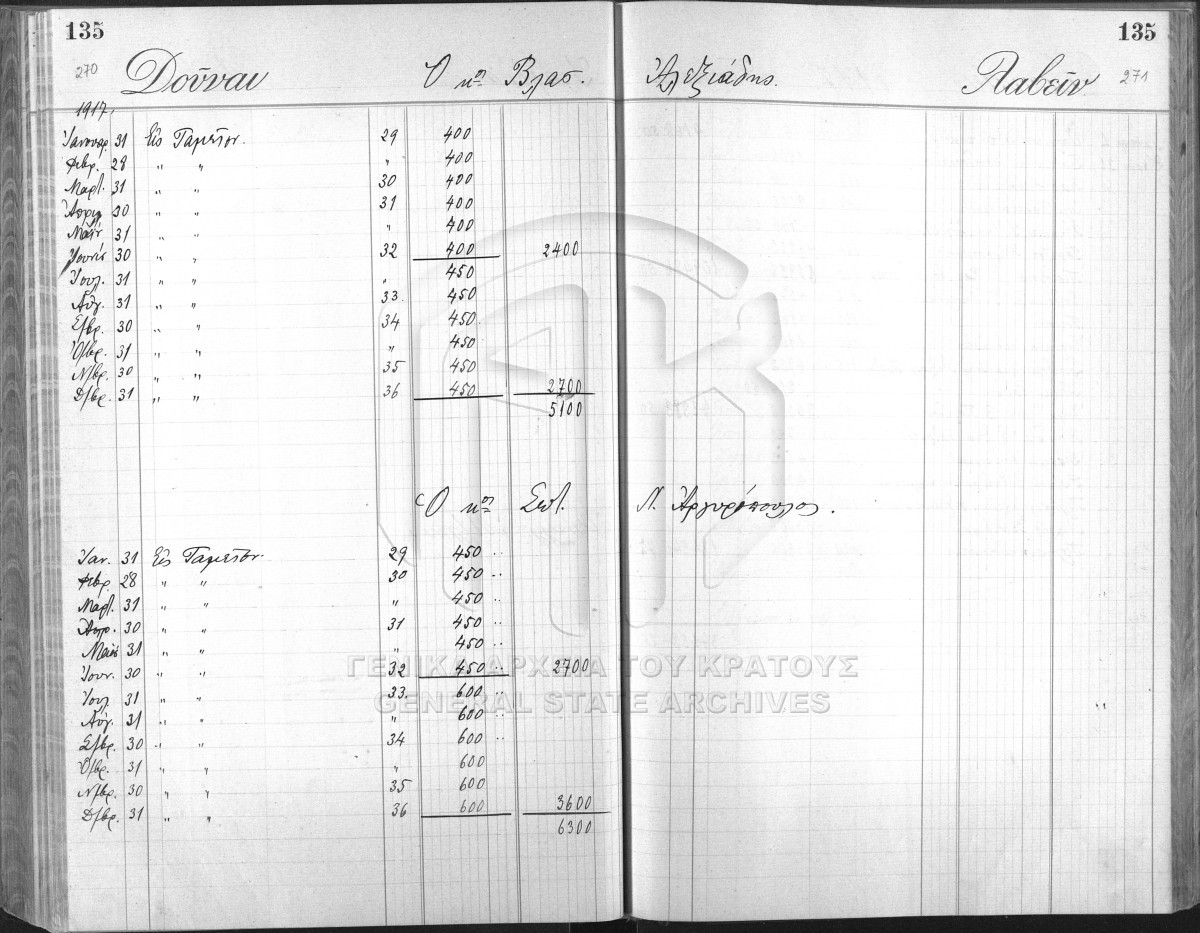 135 135
270 Δοῦναι Ὁ κος Βλασ. Ἀλεξιάδης. Λαβεῖν 271
1917.
Ἰανουαρ. 31 Εἰς Ταμεῖον. 29 400
Φεβρ. 28 " " " 400
Μαρτ. 31 " " 30 400
Ἀπριλ 30 " " 31 400
Μάϊος 31 " " " 400
Ἰούνιος 30 " " 32 400 2400
Ἰουλ. 31 " " " 450
Αὔγ. 31 " " 33 450
Σ/βρ. 30 " " 34 450
Ὀ/βρ. 31 " " " 450
Ν/βρ. 30 " " 35 450
Δ/βρ. 31 " " 36 450 2700
5100
Ὁ κος Σωτ. Ν. Ἀργυρόπουλος.
Ἰαν. 31 Εἰς Ταμεῖον. 29 450 ..
Φεβρ. 28 " " 30 450 ..
Μαρτ. 31 " " " 450 ..
Ἀπρ. 30 " " 31 450 ..
Μάϊος 31 " " " 450 ..
Ἰουν. 30 " " 32 450 .. 2700
Ἰουλ 31 " " 33 600 ..
Αὔγ. 31 " " " 600 ..
Σ/βρ. 30 " " 34 600 ..
Ὀ/βρ. 31 " " " 600
Ν/βρ. 30 " " 35 600
Δ/βρ. 31 " " 36 600 3600
6300
ΓΕΝΙΚΑ ΑΡΧΕΙΑ ΤΟΥ ΚΡΑΤΟΥΣ
GENERAL STATE ARCHIVES